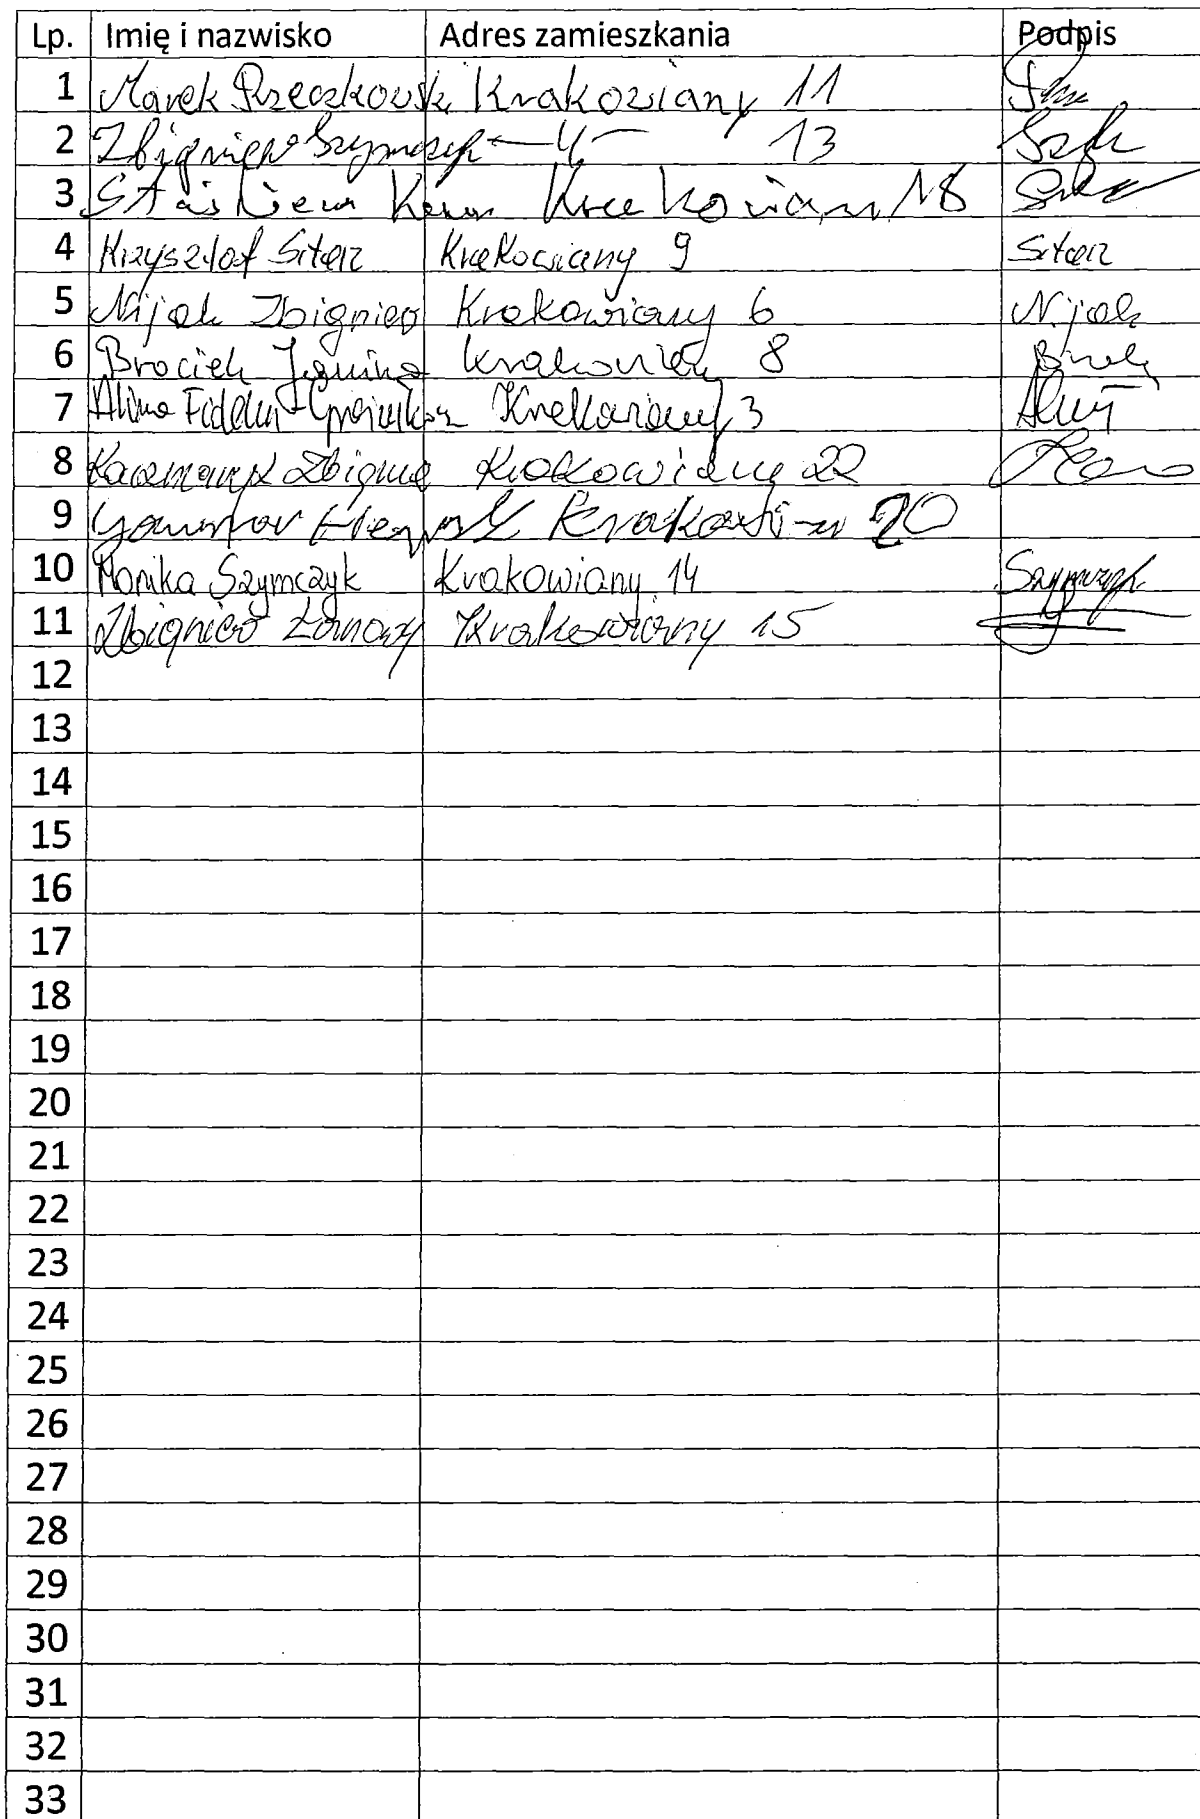 Lp. Imię i nazwisko Adres zamieszkania Podpis
1 Marek Rzeczkowski Krakowiany 11
2 Zbigniew Szymczyk —"— 13
3 18
4 Krzysztof Sitarz Krakowiany 9 Sitarz
5 Nijak Zbigniew Krakowiany 6 Nijak
6 Brociek Janina Krakowiany 8
7 Alina Krakowiany 3
8 Kaczmarczyk Zbigniew Krakowiany 22
9 20
10 Monika Szymczyk Krakowiany 14 Szymczyk
11 Zbigniew Krakowiany 15
12
13
14
15
16
17
18
19
20
21
22
23
24
25
26
27
28
29
30
31
32
33